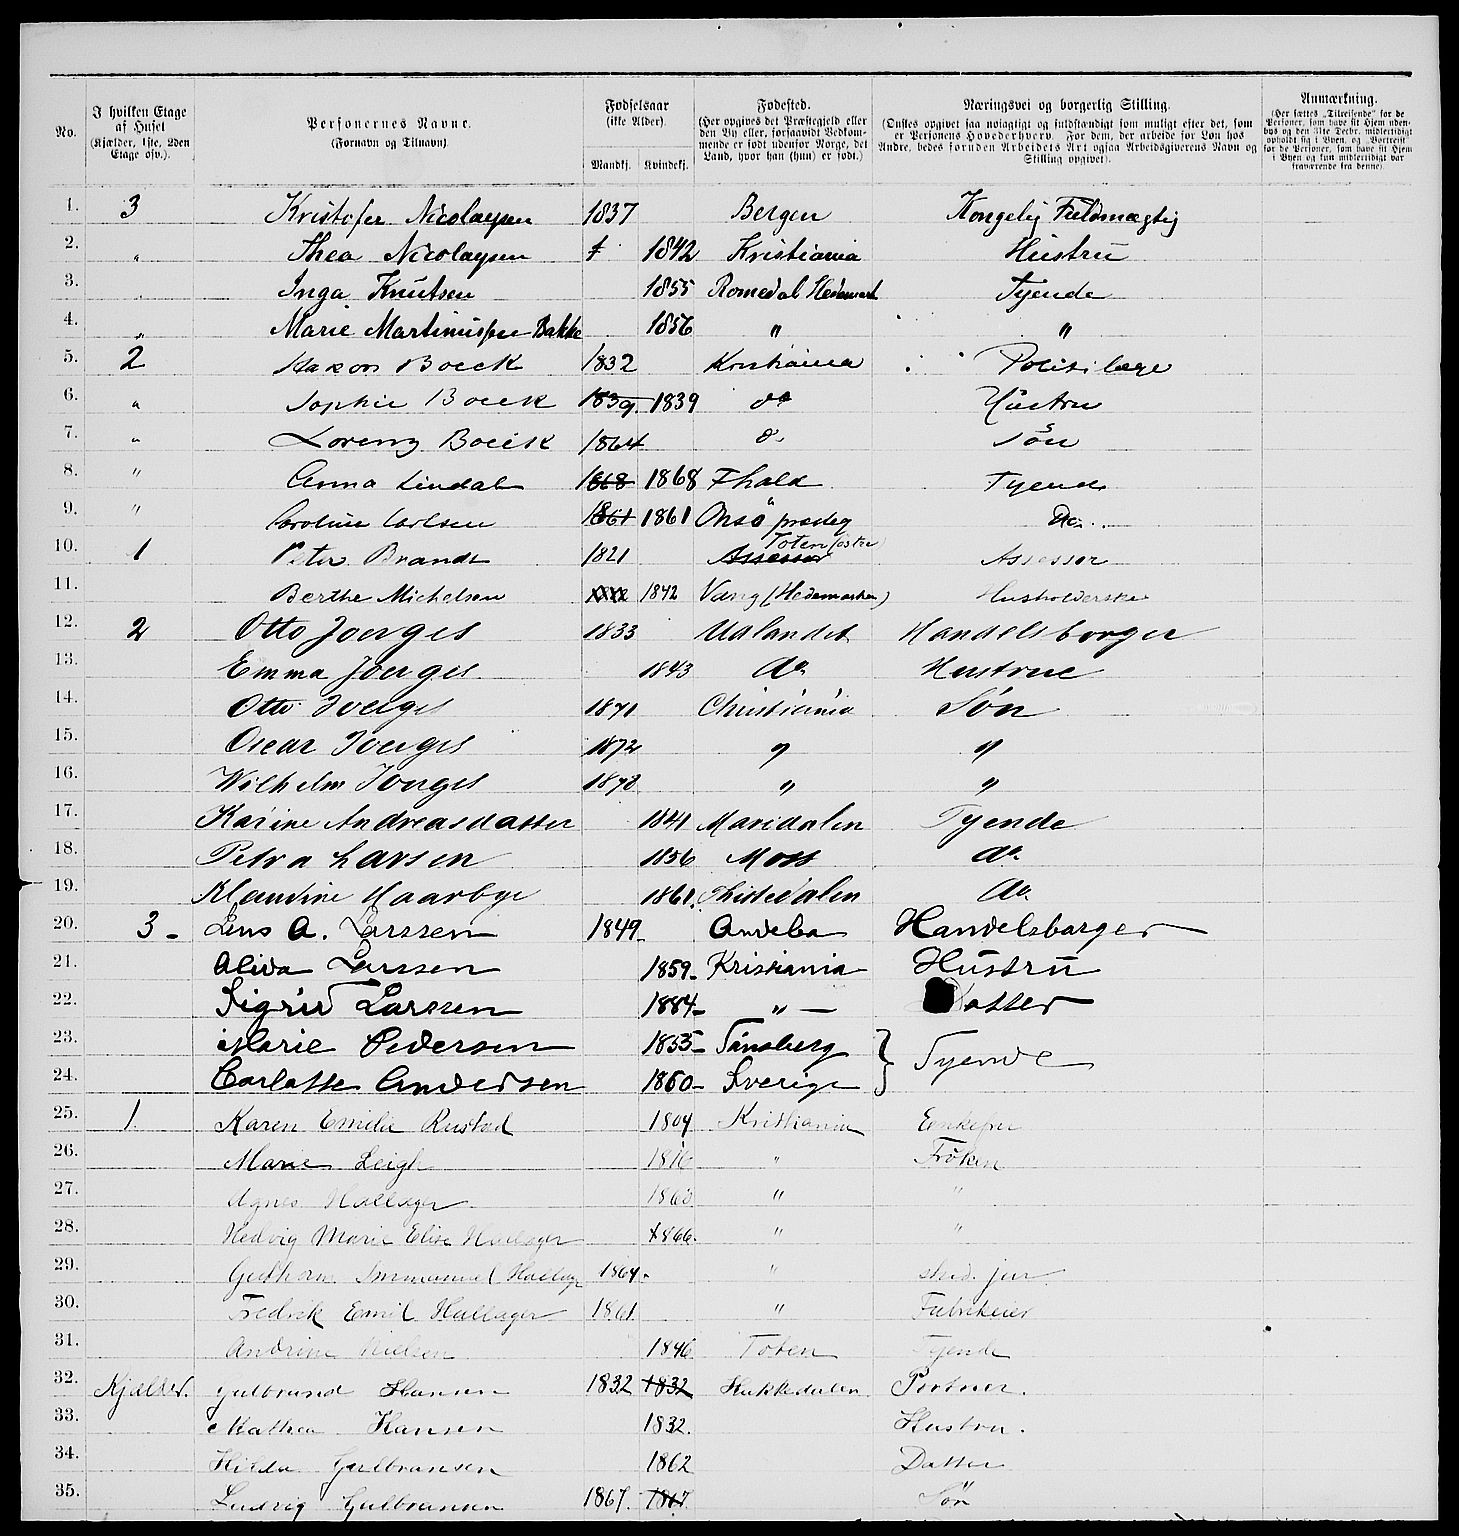 No. | I hvilken Etage af Huset (Kjælder, 1ste, 2den Etage osv.). | Personernes Navne. (Fornavn og Tilnavn). | Fødselsaar (ikke Alder). Mandkj. | Kvindekj. | Fødested. (Her opgives det Præstegjeld eller den By eller, forsaavidt Vedkommende er født udenfor Norge, det Land, hvor han (hun) er født.) | Næringsvei og borgerlig Stilling. (Ønskes opgivet saa nøiagtigt og fuldstændigt som muligt efter det, som er Personens Hovederhverv. For dem, der arbeide for Løn hos Andre, bedes foruden Arbeidets Art ogsaa Arbeidsgiverens Navn og Stilling opgivet). | Anmærkning. (Her sættes „Tilreisende" for de Personer, som have sit Hjem udenbys og den 31te Decbr. midlertidigt opholdt sig i Byen, og „Bortreist" for de Personer, som have sit Hjem i Byen og kun midlertidigt var fraværende fra denne).
1. 3 Kristofer Nicolaysen 1837 Bergen Kongelig Fuldmægtig
2. " Thea Nicolaysen 1842 Kristiania Hustru
3. " Inga Knutsen 1855 Romedal Hedemark Tyende
4. " Marie Martinusen Bakke 1856 " "
5. 2 Haxon Boeck 1832 Kristiania Politilæge
6. " Sophie Boeck 1839 1839 do Hustru
7. " Lorenz Boeck 1864 do Søn
8. " Anna Lindal 1868 1868 Fhald Tyende
9. " Caroline Carlsen 1861 1861 Onsö prædeg Do.
10. 1 Peter Brandt 1821 Assessor Toten (østre) Assessor
11. Berthe Michelsen 1842 Vang (Hedemarken) Husholderske
12. 2 Otto Joerges 1833 Udlandet Handelsborger
13. Emma Joerges 1843 do. Hustrue
14. Otto Joerges 1871 Christiania Søn
15. Oscar Joerges 1872 " "
16. Wilhelm Joerges 1878 " "
17. Karine Andreasdatter 1841 Maridalen Tyende
18. Petra Larsen 1856 Moss do.
19. Klaudine Haarbye 1861. Thistedalen do.
20. 3 - Lens A. Larssen 1849. Andeba Handelsborger
21. Alida Larssen 1859- Kristiania Hustru
22. Sigrid Larssen 1884- " — Datter
23. Marie Pedersen 1855- Tønsberg } Tyende
24. Carlotte Andersen 1860- Sverige
25. 1. Karen Emilie Rustad 1804 Kristiania Enkefru
26. Marie Leigh 1816 " Frøken
27. Agnes Hallager 1860 " "
28. Hedvig Marie Elise Hallager 1866. " "
29. Guthorm Immanuel Hallager 1864. " stud. jur.
30. Fredrik Emil Hallager 1861. " Fabrikeier
31. Andrine Nielsen 1846 Toten Tyende
32. Kjælder. Gulbrand Hansen 1832 1832 Hakkedalen Portner.
33. Mathea Hansen 1832. Hustru.
34. Hilda Gulbransen 1862 Datter
35. Ludvig Gulbransen 1867. 1867. Søn